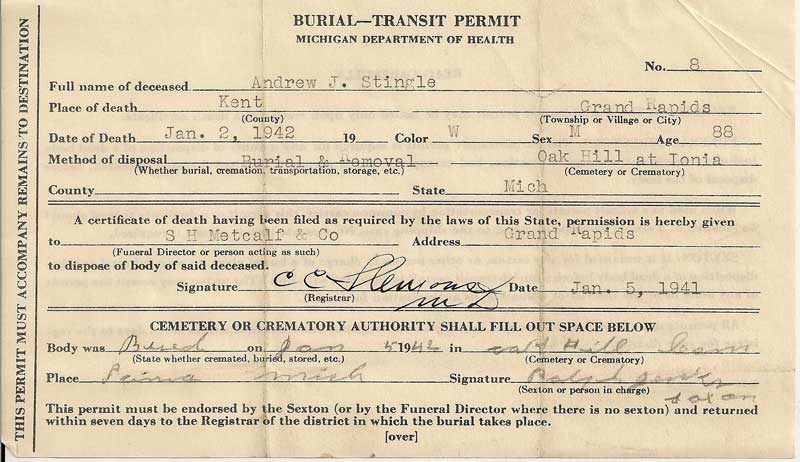 BURIAL—TRANSIT PERMIT
MICHIGAN DEPARTMENT OF HEALTH
THIS PERMIT MUST ACCOMPANY REMAINS TO DESTINATION
No. 8
Full name of deceased Andrew J. Stingle
Place of death Kent Grand Rapids
(County) (Township or Village or City)
Date of Death Jan. 2, 1942 19 Color W Sex M Age 88
Method of disposal Burial & Removal Oak Hill at Ionia
(Whether burial, cremation, transportation, storage, etc.) (Cemetery or Crematory)
County State Mich
A certificate of death having been filed as required by the laws of this State, permission is hereby given
to S H Metcalf & Co Address Grand Rapids
(Funeral Director or person acting as such)
to dispose of body of said deceased.
Signature C C Slemons Date Jan. 5, 1941
(Registrar) M D
CEMETERY OR CREMATORY AUTHORITY SHALL FILL OUT SPACE BELOW
Body was Buried on Jan 5 1942 in Oak Hill
(State whether cremated, buried, stored, etc.) (Cemetery or Crematory)
Place Mich Signature Ralph
(Sexton or person in charge)
This permit must be endorsed by the Sexton (or by the Funeral Director where there is no sexton) and returned
within seven days to the Registrar of the district in which the burial takes place.
[over]